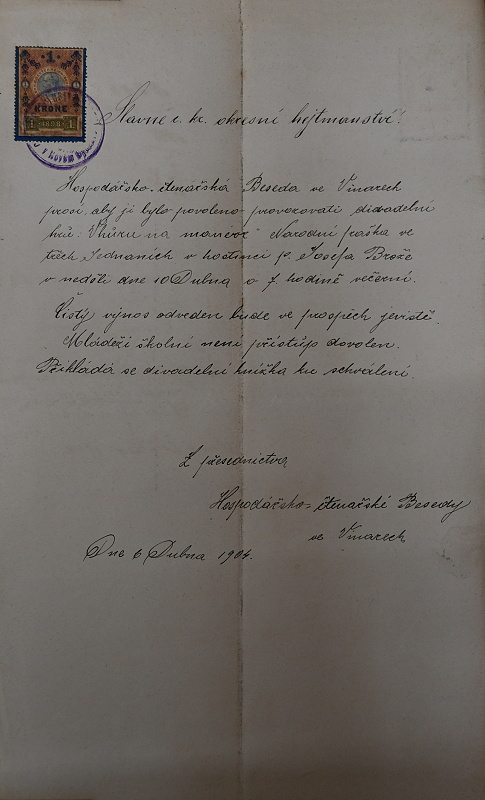 1
KRONE
1 1898 1
Slavné c. kr. okresní hejtmanství!
Hospodářsko-čtenářská Beseda ve Vinarech
prosí, aby jí bylo povoleno provozovati divadelní
hru: Vzhůru na manévr Národní fraška ve
třech jednáních v hostinci p. Josefa Brože
v neděli dne 10 Dubna o 7 hodině večerní.
Čistý výnos odveden bude ve prospěch jeviště.
Mládeži školní není přístup dovolen.
Přikládá se divadelní knížka ku schválení.
Z přesednictva
Hospodářsko-čtenářské Besedy
ve Vinarech
Dne 6 Dubna 1904.